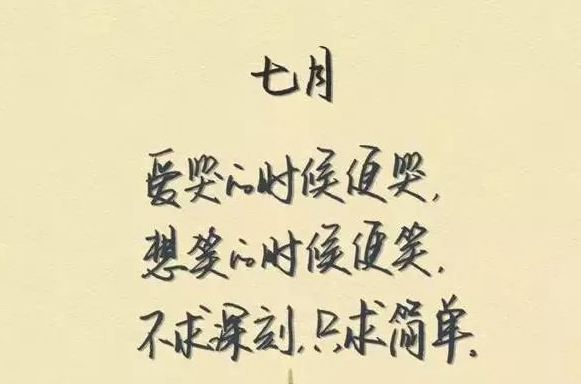 七月
爱哭的时候便哭,
想笑的时候便笑,
不求深刻,只求简单.